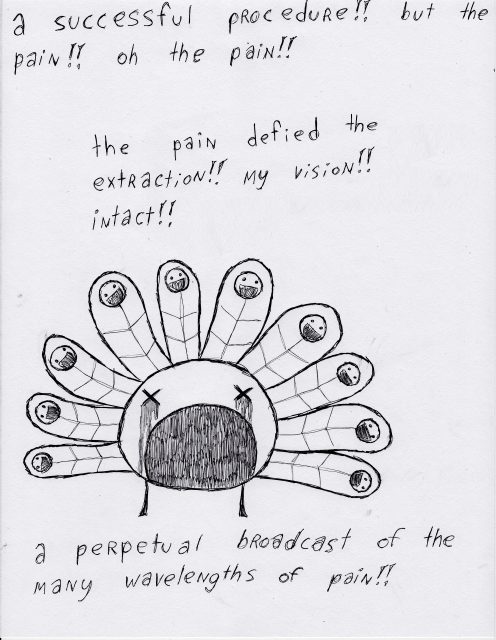 a successful procedure!! but the
pain!! oh the pain!!
the pain defied the
extraction!! my vision!!
intact!!
a perpetual broadcast of the
many wavelengths of pain!!